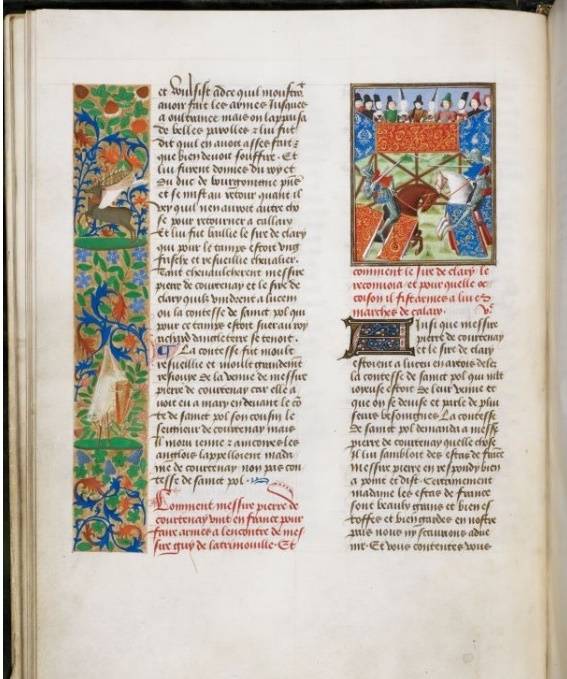 et voulsist adce quil moustra
auoir fait les armes Jusques
a oultrance mais on lappaisa
de belles parolles z lui fut
dit quil en auoit asses fait z
que bien deuoit souffire. Et
lui furent donnes du roy et
du duc de bourgoingne
et se mist au retour quant il
vey quil nen auroit autre cho
se pour retourner a callaix
Et lui fut baillie le sire de clary
qui pour le temps estoit vng
frische et resueillie cheualier.
Tant cheuaulcherent messire
pierre de courtenay et le sire de
clary quilz vindrent a lucem
ou la contesse de sainct pol qui
pour ce temps estoit suer au roy
richard dangleterre se tenoit.
La contesse fut moult
resueillie et moult grandement
resiouye de la venue de messire
pierre de courtenay car elle a
uoit eu a mary en deuant le co
te de sainct pol son cousin le
seigneur de courtenay mais
Il mourut Jenne z ancores les
anglois lappelloient mada
me de courtenay non pas con
tesse de sainct pol.
Comment messire pierre de
courtenay vint en france pour
faire armes a lencontre de mes
sire guy de latrimouille. Et
comment le sire de clary le
reconuoia et pour quelle oc
coison il fist armes a lui es
marches de calaix.
Ainsi que messire
pierre de courtenay
et le sire de clary
estoient a luceu en artois deles
la contesse de sainct pol qui mlt
ioieuse estoit de leur venue et
que on se deuise et parle de plui
seurs besoingnes La contesse
de sainct pol demanda a messire
pierre de courtenay quelle chose
Il lui sambloit des estas de france
Messire pierre en respondy bien
a point et dist. Certainement
madame les estas de france
sont beaulx grans et bien es
toffes et bien gardes en nostre
pais nous ny scaurions adue
nir. Et vous contentes vous